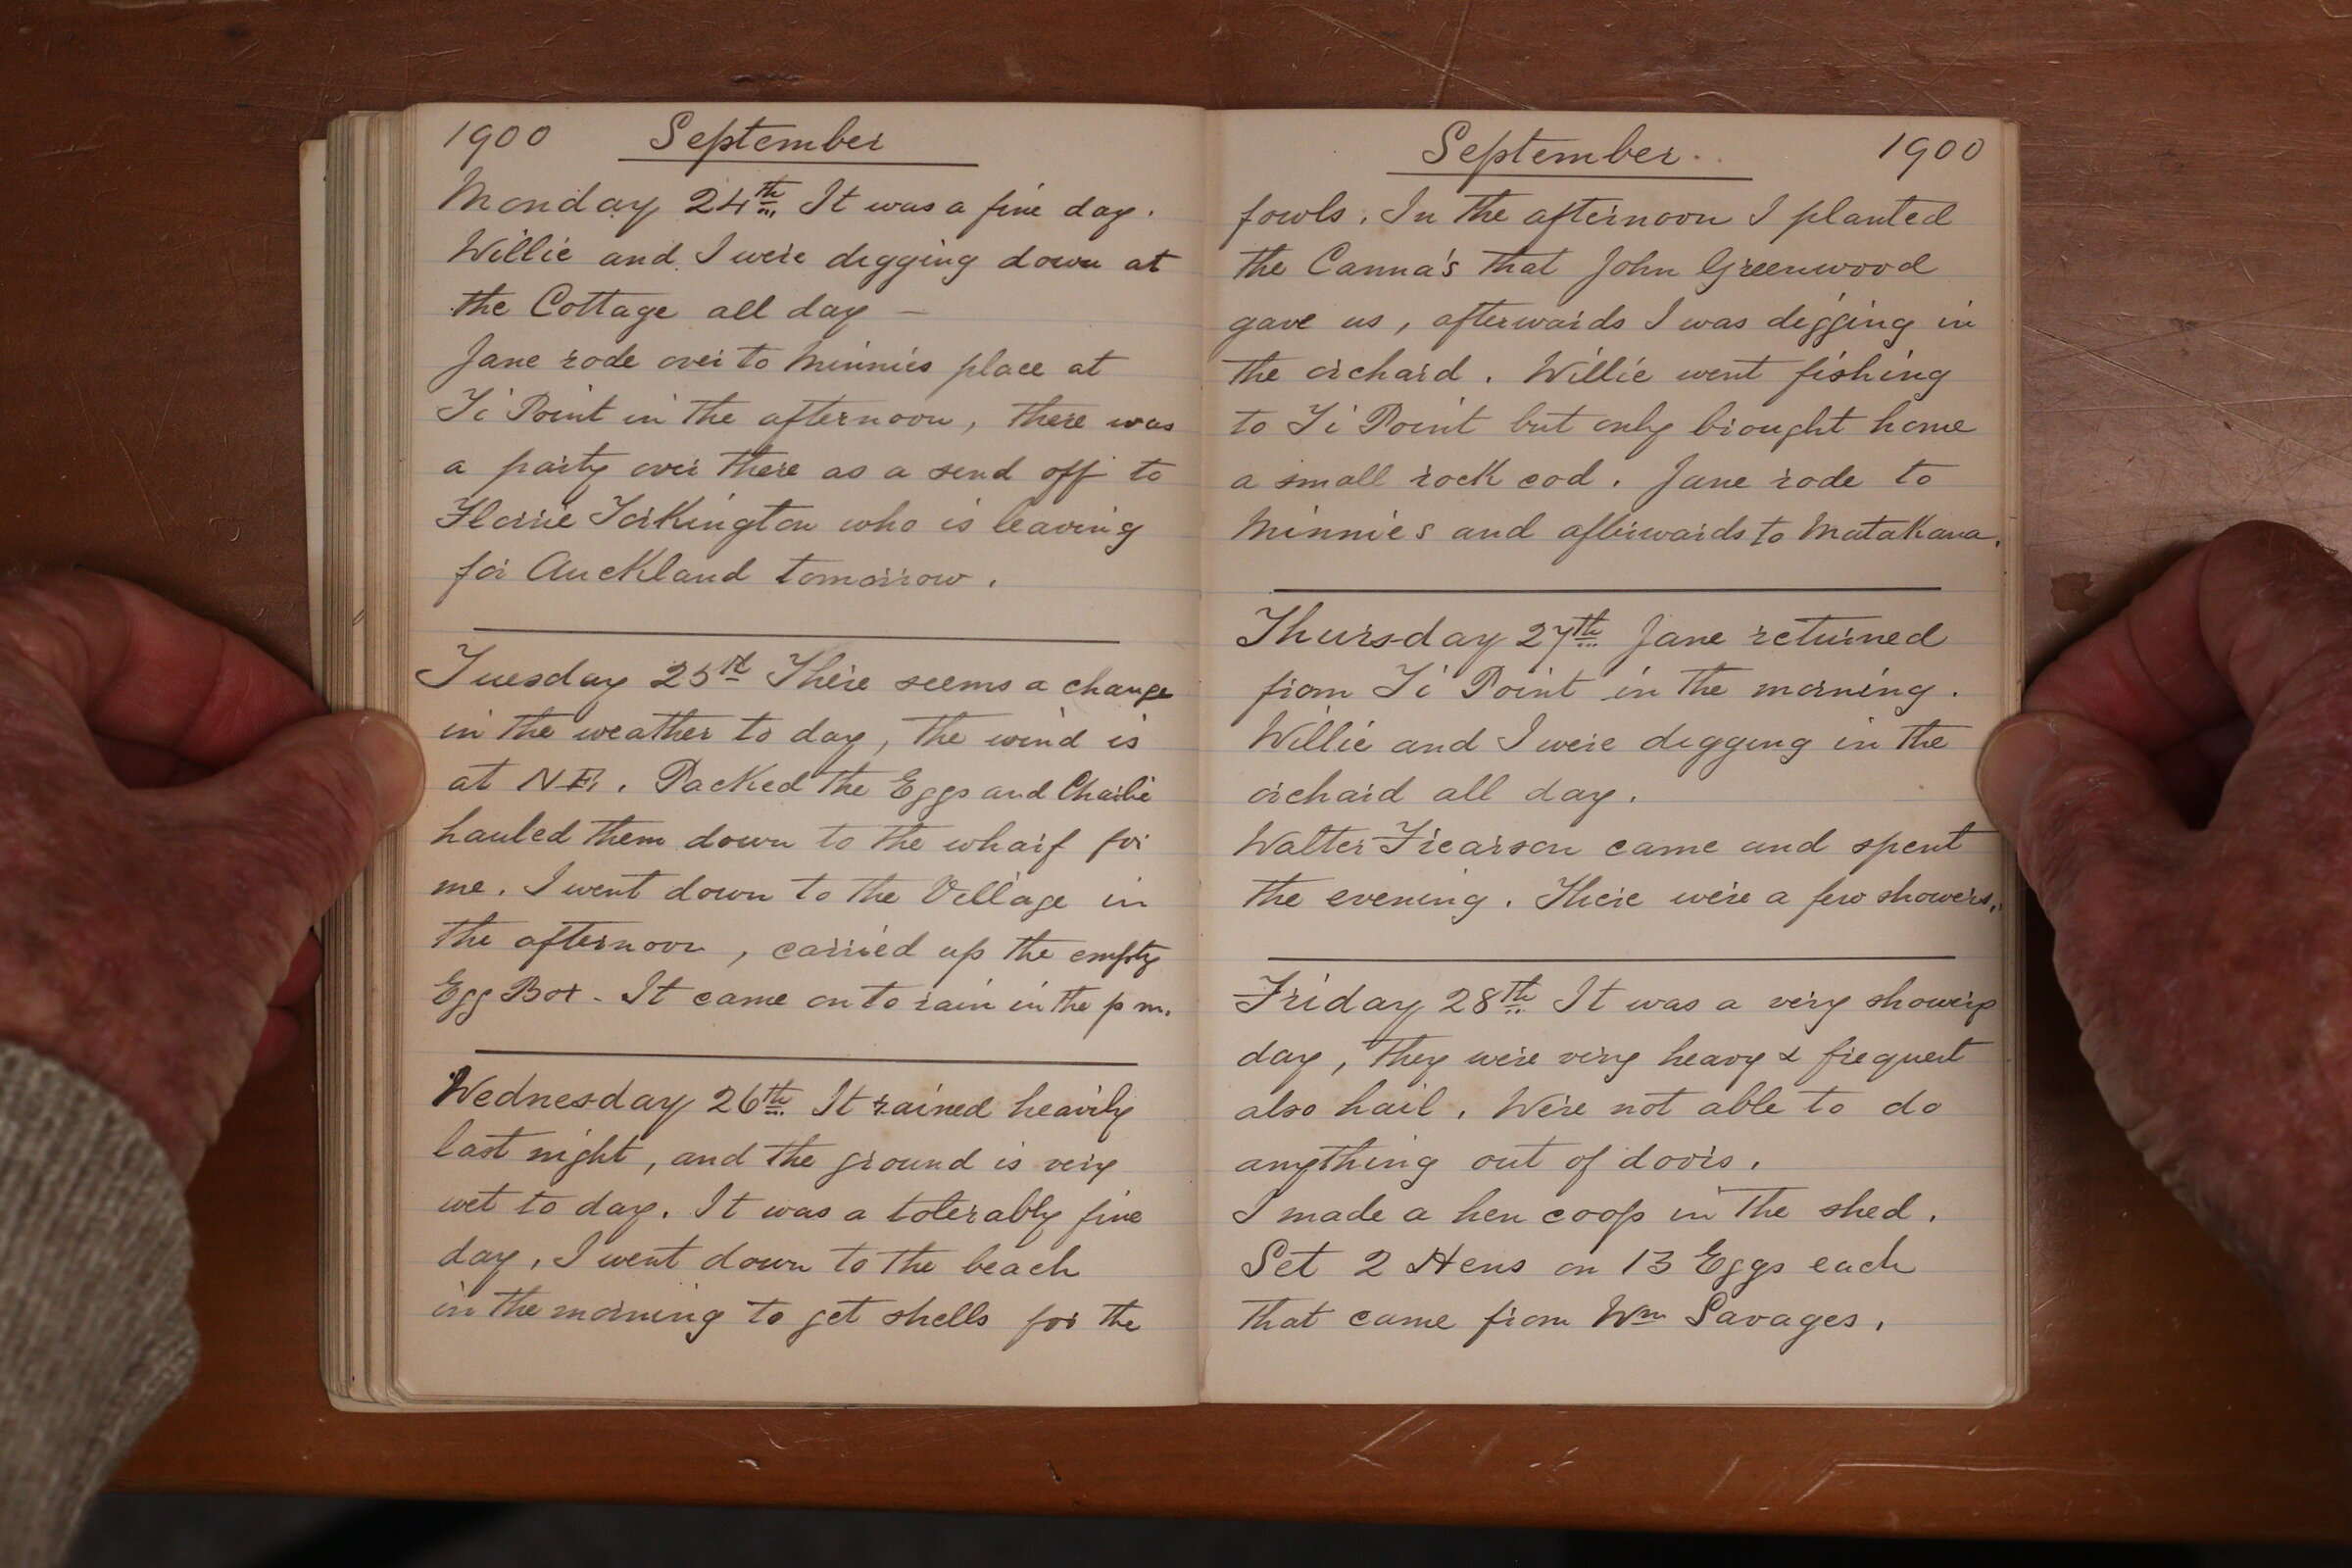 1900 September
Monday 24th It was a fine day.
Willie and I were digging down at
the Cottage all day –
Jane rode over to Minnies place at
Ti Point in the afternoon, there was
a party over there as a send off to
Florrie Torkington who is leaving
for Auckland tomorrow.
Tuesday 25th There seems a change
in the weather to day, the wind is
at NE. Packed the Eggs and Charlie
hauled them down to the wharf for
me. I went down to the Village in
the afternoon, carried up the empty
Egg Box - It came on to rain in the p m.
Wednesday 26th It rained heavily
last night, and the ground is very
wet to day. It was a tolerably fine
day. I went down to the beach
in the morning to get shells for the
September 1900
fowls. In the afternoon I planted
the Canna's that John Greenwood
gave us, afterwards I was digging in
the orchard. Willie went fishing
to Ti Point but only brought home
a small rock cod. Jane rode to
Minnies and afterwards to Matakana.
Thursday 27th Jane returned
from Ti Point in the morning.
Willie and I were digging in the
orchard all day.
Walter Frearson came and spent
the evening. There were a few showers.
Friday 28th It was a very showery
day, they were very heavy & frequent
also hail. Were not able to do
anything out of doors.
I made a hen coop in the shed.
Set 2 Hens on 13 Eggs each
that came from Wm Savages.